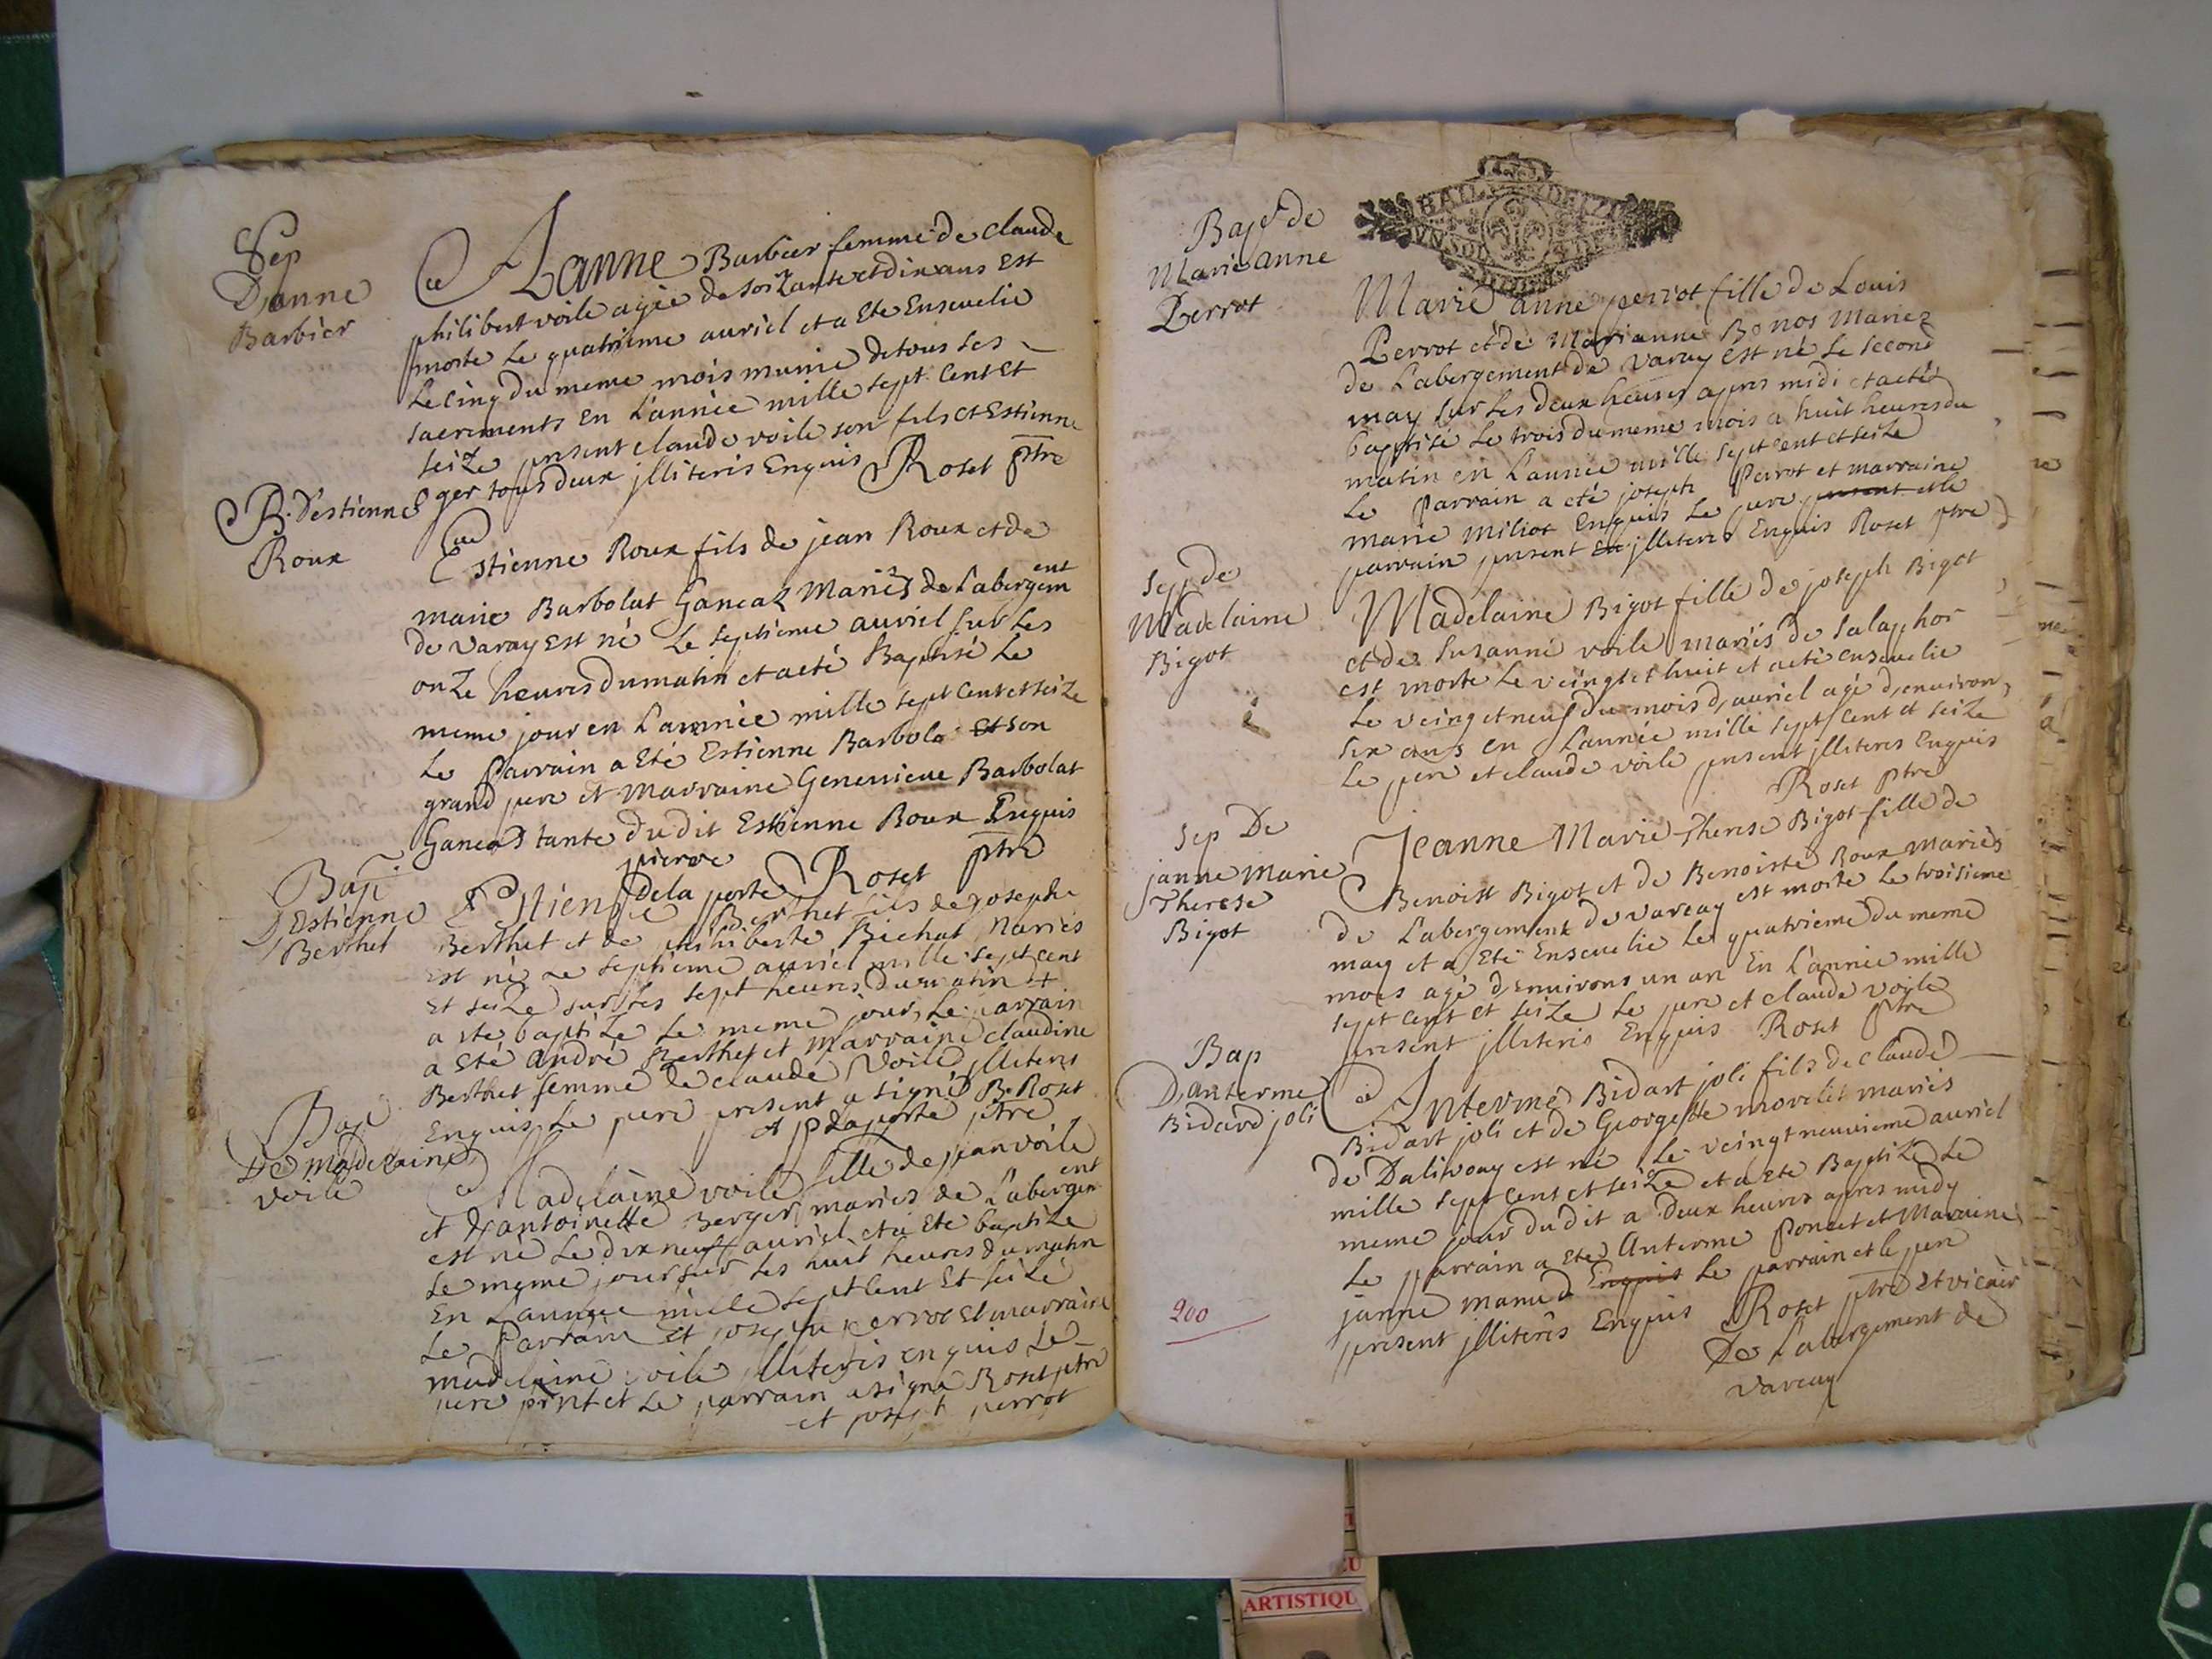 Sep
D,anne
Barbier
anne Barbier femme de claude
philibert voile agée de soizante et dix ans Est
morte Le quatrieme auriel et a Ete Enseuelie
Le cinq du meme mois munie de tous ses
sacrements En L'année mille sept Cent Et
seize present claude voile son fils et Estienne
ger tous deux jlliteris Enquis Roset ptre
B. d'estienne
Roux
Estienne Roux fils de jean Roux et de
marie Barbolat Ganeaz Mariés de Labergem
ent
de varay Est né Le septieme auriel sur Les
onze heures du matin et a eté Baptisé Le
meme jour en L'année mille sept Cent et seize
Le Parrain a Eté Estienne Barbola Et son
grand pere et Marraine Geneuieue Barbolat
Ganeas tante du dit Estienne Roux Enquis
pierre
dela porte Roset ptre
Bap
d'Estienne
Berthet
Estienne Berthet fils de joseph
Berthet et de philiberte Bichat Mariés
Est né Le septieme auriel mille sept cent
et seize sur Les sept heures du matin et
a ete baptize Le meme jour, Le parrain
a Eté andré Berthet et Marraine claudine
Berthet femme de claude Voile jlliteris
Enquis Le pere present a signé B. Roset
et p Laporte ptre
Bap
De Madelaine
voile
Madelaine voile fille de jean voile
et d'antoinette Berger mariés de L'abergem
ent
est né Le dixneuf auriel et a Ete baptize
Le meme jour sur Les huit heures du matin
En L'année mille sept Cent Et seize
Le Parrain Et joseph perrot Et marraine
madelaine voile jlliteris enquis Le
pere prnt et Le parrain a signé Roset ptre
et joseph perrot
Bap de
Marie anne
Perrot
Marie anne perrot fille de Louis
Perrot et de Marianne Bonos Mariez
de Labergement de Varay Est né Le second
may sur Les deux heures apres midi et a eté
baptisé Le trois du meme mois a huit heures du
matin en L'année mille sept cent et seize
Le Parrain a eté joseph Perrot et marraine
marie Miliot Enquis Le pere present et le
parrain present et jlliteres Enquis Roset ptre
Sep de
Madelaine
Bigot
Madelaine Bigot fille de joseph Bigot
et de Susanne voile mariés de Salaphor
est morte Le veingt et huit et a eté enseuelie
Le veing et neuf du mois d'auriel agé d'enuiron
six ans en L'année mille sept Cent et seize
Le pere et claude voile present jlliteres Enquis
Roset ptre
Sep De
janne Marie
Therese
Bigot
Jeanne Marie Therese Bigot fille de
Benoist Bigot et de Benoiste Roux Mariés
de L'abergement de varay est morte Le troisieme
may et a Eté Enseuelie Le quatrieme du meme
mois agé d'enuirons un an En L'année mille
sept cent et seize Le pere et claude voile
present jlliteris Enquis Roset ptre
Bap
D'anterme
Bidard joli
Anterme Bidart joli fils de claude
Bidart joli et de Georgette morelet mariés
de Daliuoay est né Le veingt neuuieme auriel
mille sept Cent et seize et a Ete Baptize Le
meme jour du dit a deux heures apres midy
Le parrain a Ete Anterme Poncet et Maraine
janne manud Enquis Le parrain et le pere
present jlliteris Enquis Roset ptre et vicair
De L'abergement de
Vareay
200
ARTISTIQU